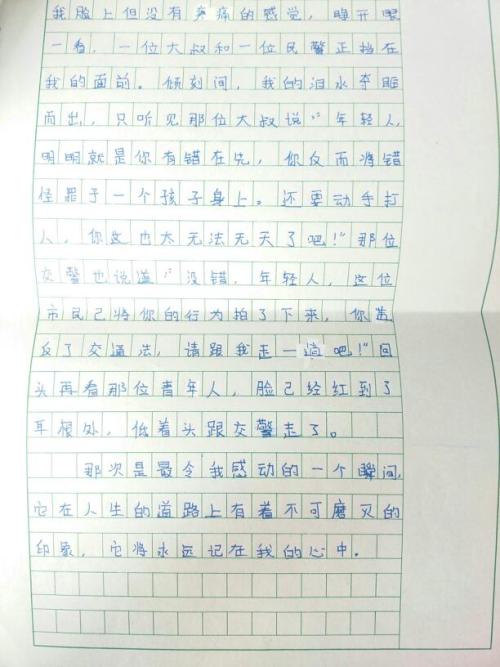 我脸上但没有疼痛的感觉，睁开眼
一看，一位大叔和一位民警正挡在
我的面前。倾刻间，我的泪水夺眶
而出，只听见那位大叔说：“年轻人，
明明就是你有错在先，你反而将错
怪罪于一个孩子身上。还要动手打
人，你这也太无法无天了吧！”那位
交警也说道：“没错，年轻人，这位
市民已将你的行为拍了下来，你违
反了交通法，请跟我走一趟吧！”回
头再看那位青年人，脸已经红到了
耳根处，低着头跟交警走了。
那次是最令我感动的一个瞬间，
它在人生的道路上有着不可磨灭的
印象，它将永远记在我的心中。